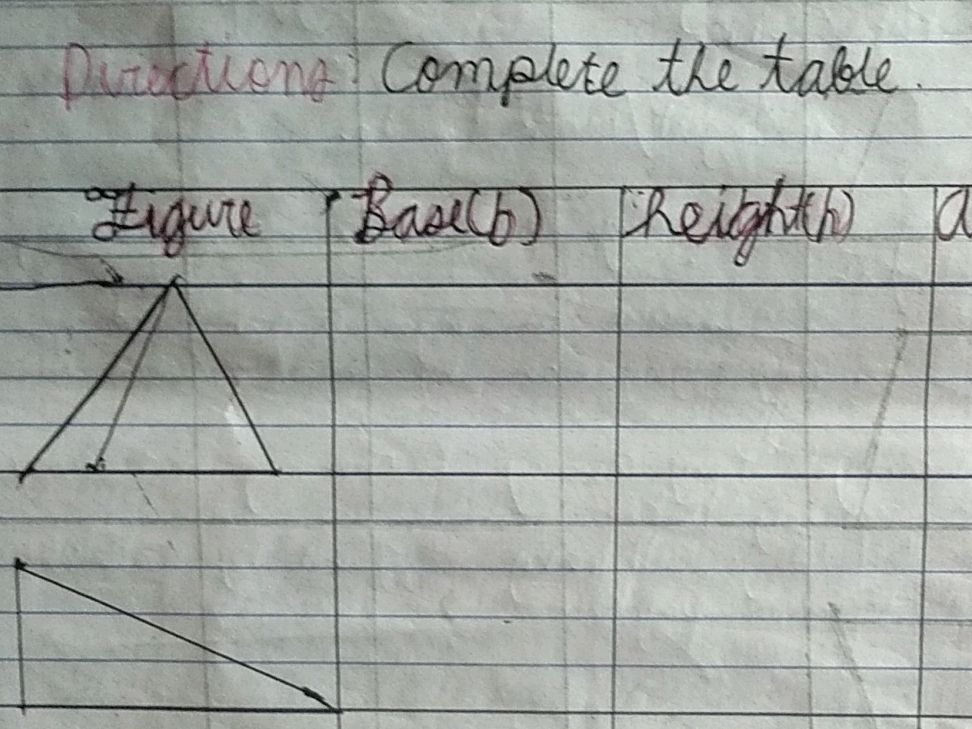 Directions: Complete the table.
Figure Base(b) height(h)